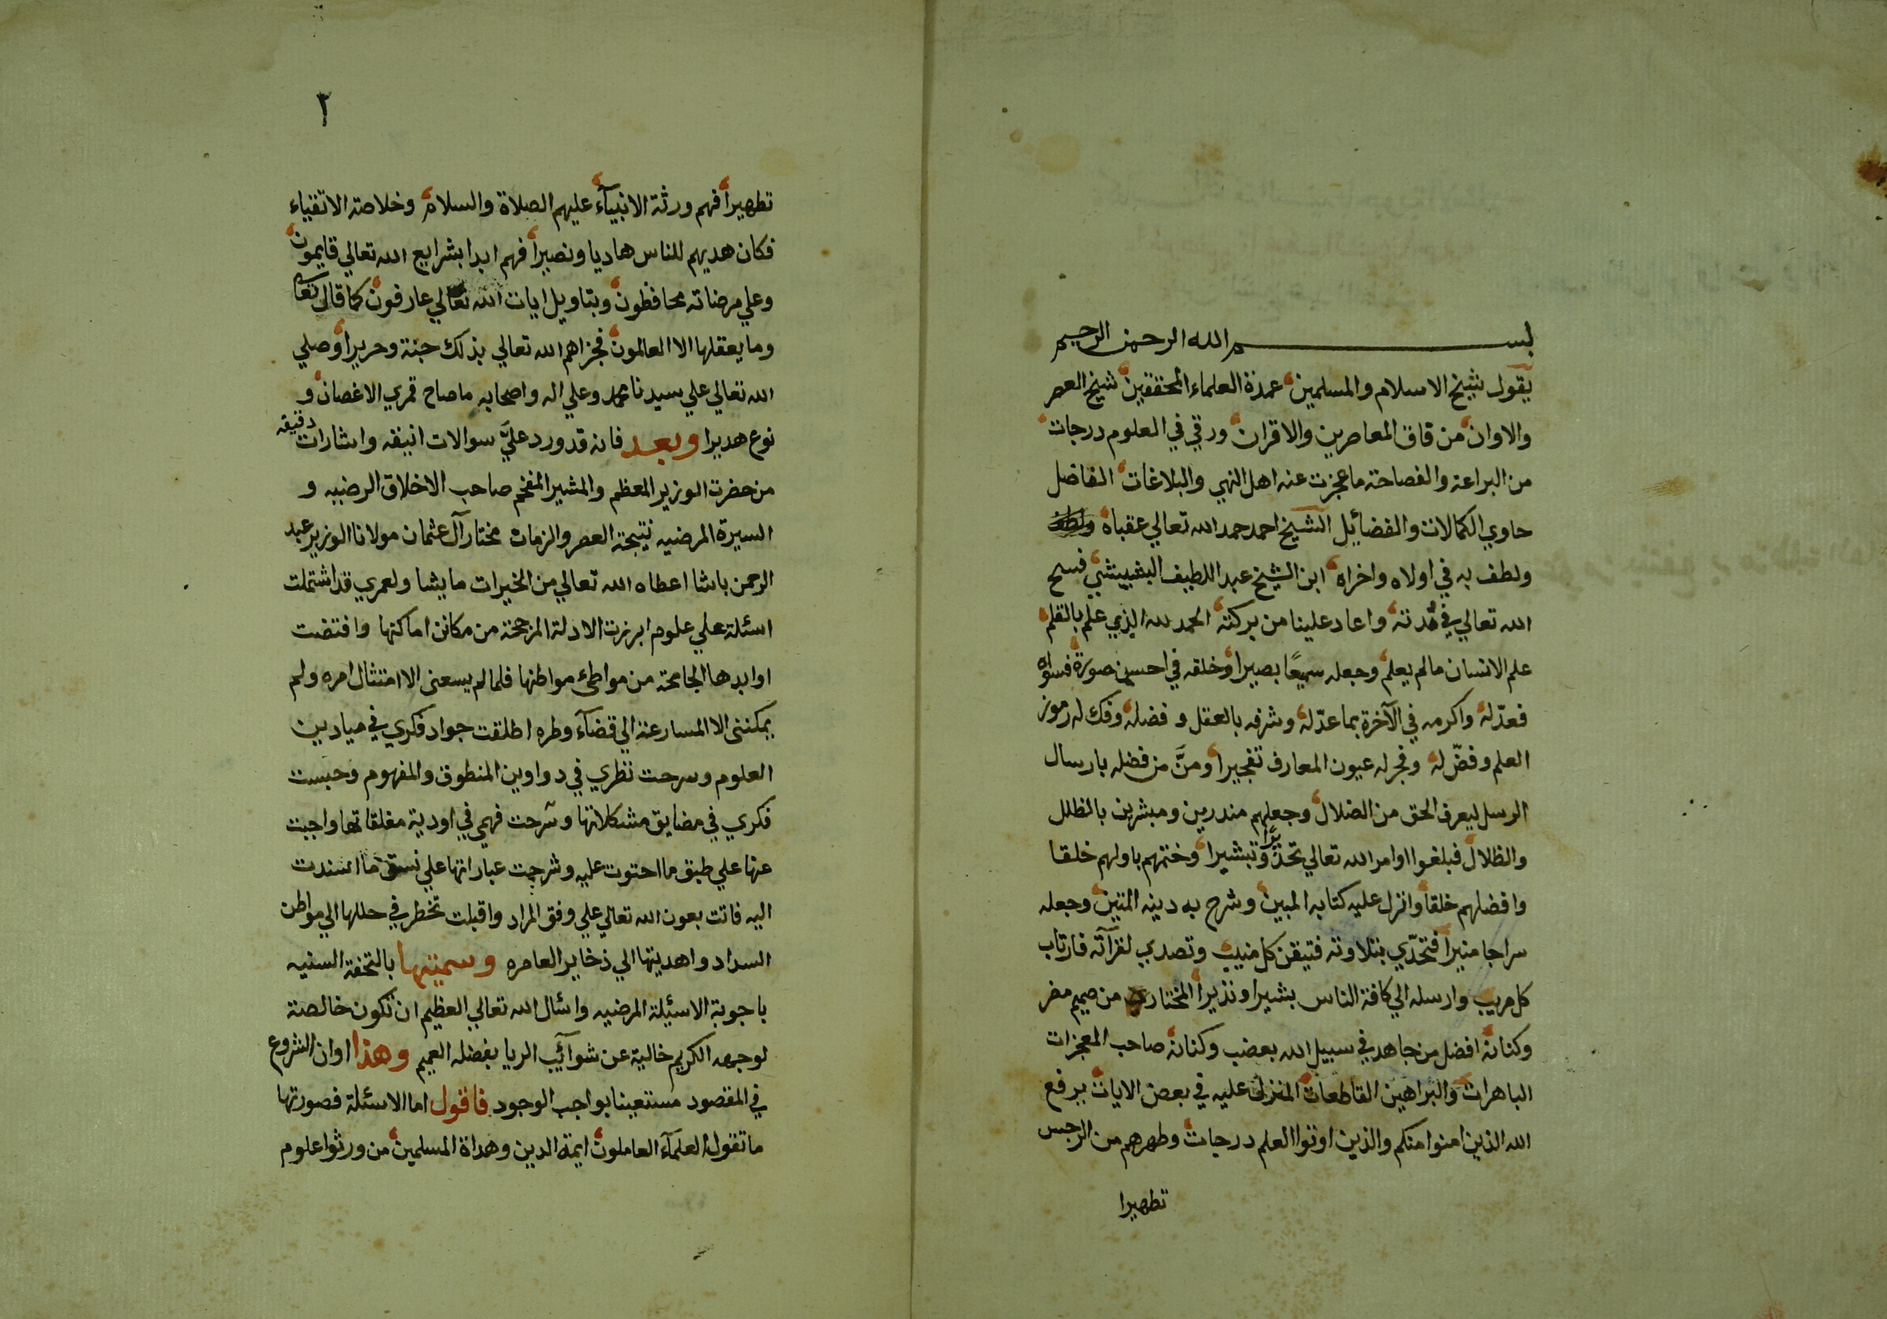 بسم الله الرحمن الرحيم
يقول شيخ الاسلام والمسلمين عمدة العلماء المحققين شيخ العصر
والاوان من فاق المعاصرين والاقران ورقي في العلوم درجات
من البراعة والفصاحة ما عجزت عنه اهل النهي والبلاغات الفاضل
حاوي الكمالات والفضايل الشيخ احمد حمد الله تعالي عقباه
ولطف به في اولاه واخراه ابن الشيخ عبد اللطيف البشبيشي فسح
الله تعالي في مدته واعاد علينا من بركته الحمد لله الذي علم بالقلم
علم الانسان مالم يعلم وجعله سميعا بصيرا وخلقه في احسن صورة فسواه
فعدله واكرمه في الآخرة بما عدّله وشرفه بالعقل وفضله وفك له رموز
العلم وفصّله وفجر له عيون المعارف تفجيرا ومنَّ من فضله بارسال
الرسل ليعرف الحق من الضلال وجعلهم منذرين ومبشرين بالظلل
والظلال فبلغوا اوامر الله تعالي تحذيرا وتبشيرا وختمهم باولهم خلقا
وافضلهم خلقا وانزل عليه كتابه المبين وشرح به دينه المتين وجعله
سراجا منيرا فتحدّي بتلاوته فتيقن كل منيب وتصدي لقرآته فارتاب
كل مريب وارسله الي كافة الناس بشيرا ونذيرا المختار من صميم مضر
وكنانة افضل من جاهد في سبيل الله بعضب وكنانة صاحب المعجزات
الباهرات والبراهين القاطعات المنزل عليه في بعض الايات يرفع
الله الذين امنوا منكم والذين اوتوا العلم درجات وطهرهم من الرجس
تطهيرا
٢
تطهيرا فهم ورثة الانبيآء عليهم الصلاة والسلام وخلاصة الاتقياء
فكان هديهم للناس هاديا ونصيرا فهم ابدا بشرايع الله تعالي قايمون
وعلي مرضاته محافظون وبتاويل ايات الله تعالي عارفون كما قال تعالي
وما يعقلها الا العالمون فجزاهم الله تعالي بذلك جنة وحريرا وصلي
الله تعالي علي سيدنا محمد وعلي اله واصحابه ما صاح قمري الاغصان و
نوع هديرا وبعد فانه قد ورد عليَّ سوالات انيقه واشارات دقيقه
من حضرت الوزير المعظم والمشير المفخم صاحب الاخلاق الرضيه و
السيرة المرضيه نتيجة العصر والزمان مختار آل عثمان مولانا الوزير عبد
الرحمن باشا اعطاه الله تعالي من الخيرات ما يشا ولعمري قد اشتملت
اسئلته علي علوم ابرزت الادلة المرجحة من مكانن اماكنها واقتضت
اوابدها الجامحة من مواطئ مواطنها فلما لم يسعني الا امتثال امره ولم
يمكنني الا المسارعة الي قضآء وطره اطلقت جواد فكري في ميادين
العلوم وسرحت نظري في دواوين المنطوق والمفهوم وحبست
فكري في مضايق مشكلاتها وسرحت فهمي في اودية مغلقاتها واجبت
عنها علي طبق ما احتوت عليه وشرحت عباراتها علي نسق ما اسندت
اليه فاتت بعون الله تعالي علي وفق المراد واقبلت تخطر في حللها الي مواطن
السداد واهديتها الي ذخاير العامره وسميتها بالتحفة السنيه
باجوبة الاسئيلة المرضيه واسأل الله تعالي العظيم ان تكون خالصة
لوجهه الكريم خالية عن شوآئب الريا بفضله العميم وهذا اوان الشروع
في المقصود مستعينا بواجب الوجود فاقول اما الاسئلة فصورتها
ما تقول العلمآء العاملون ايمة الدين وهداة المسلمين من ورثوا علوم